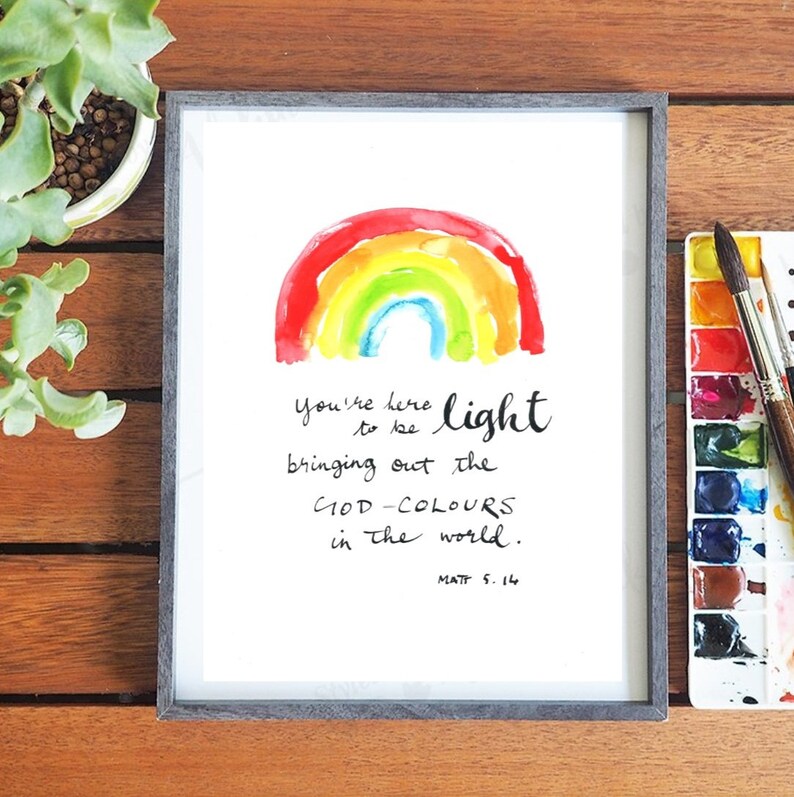 You're here
to be light
bringing out the
GOD-COLOURS
in the world.
MATT 5.14